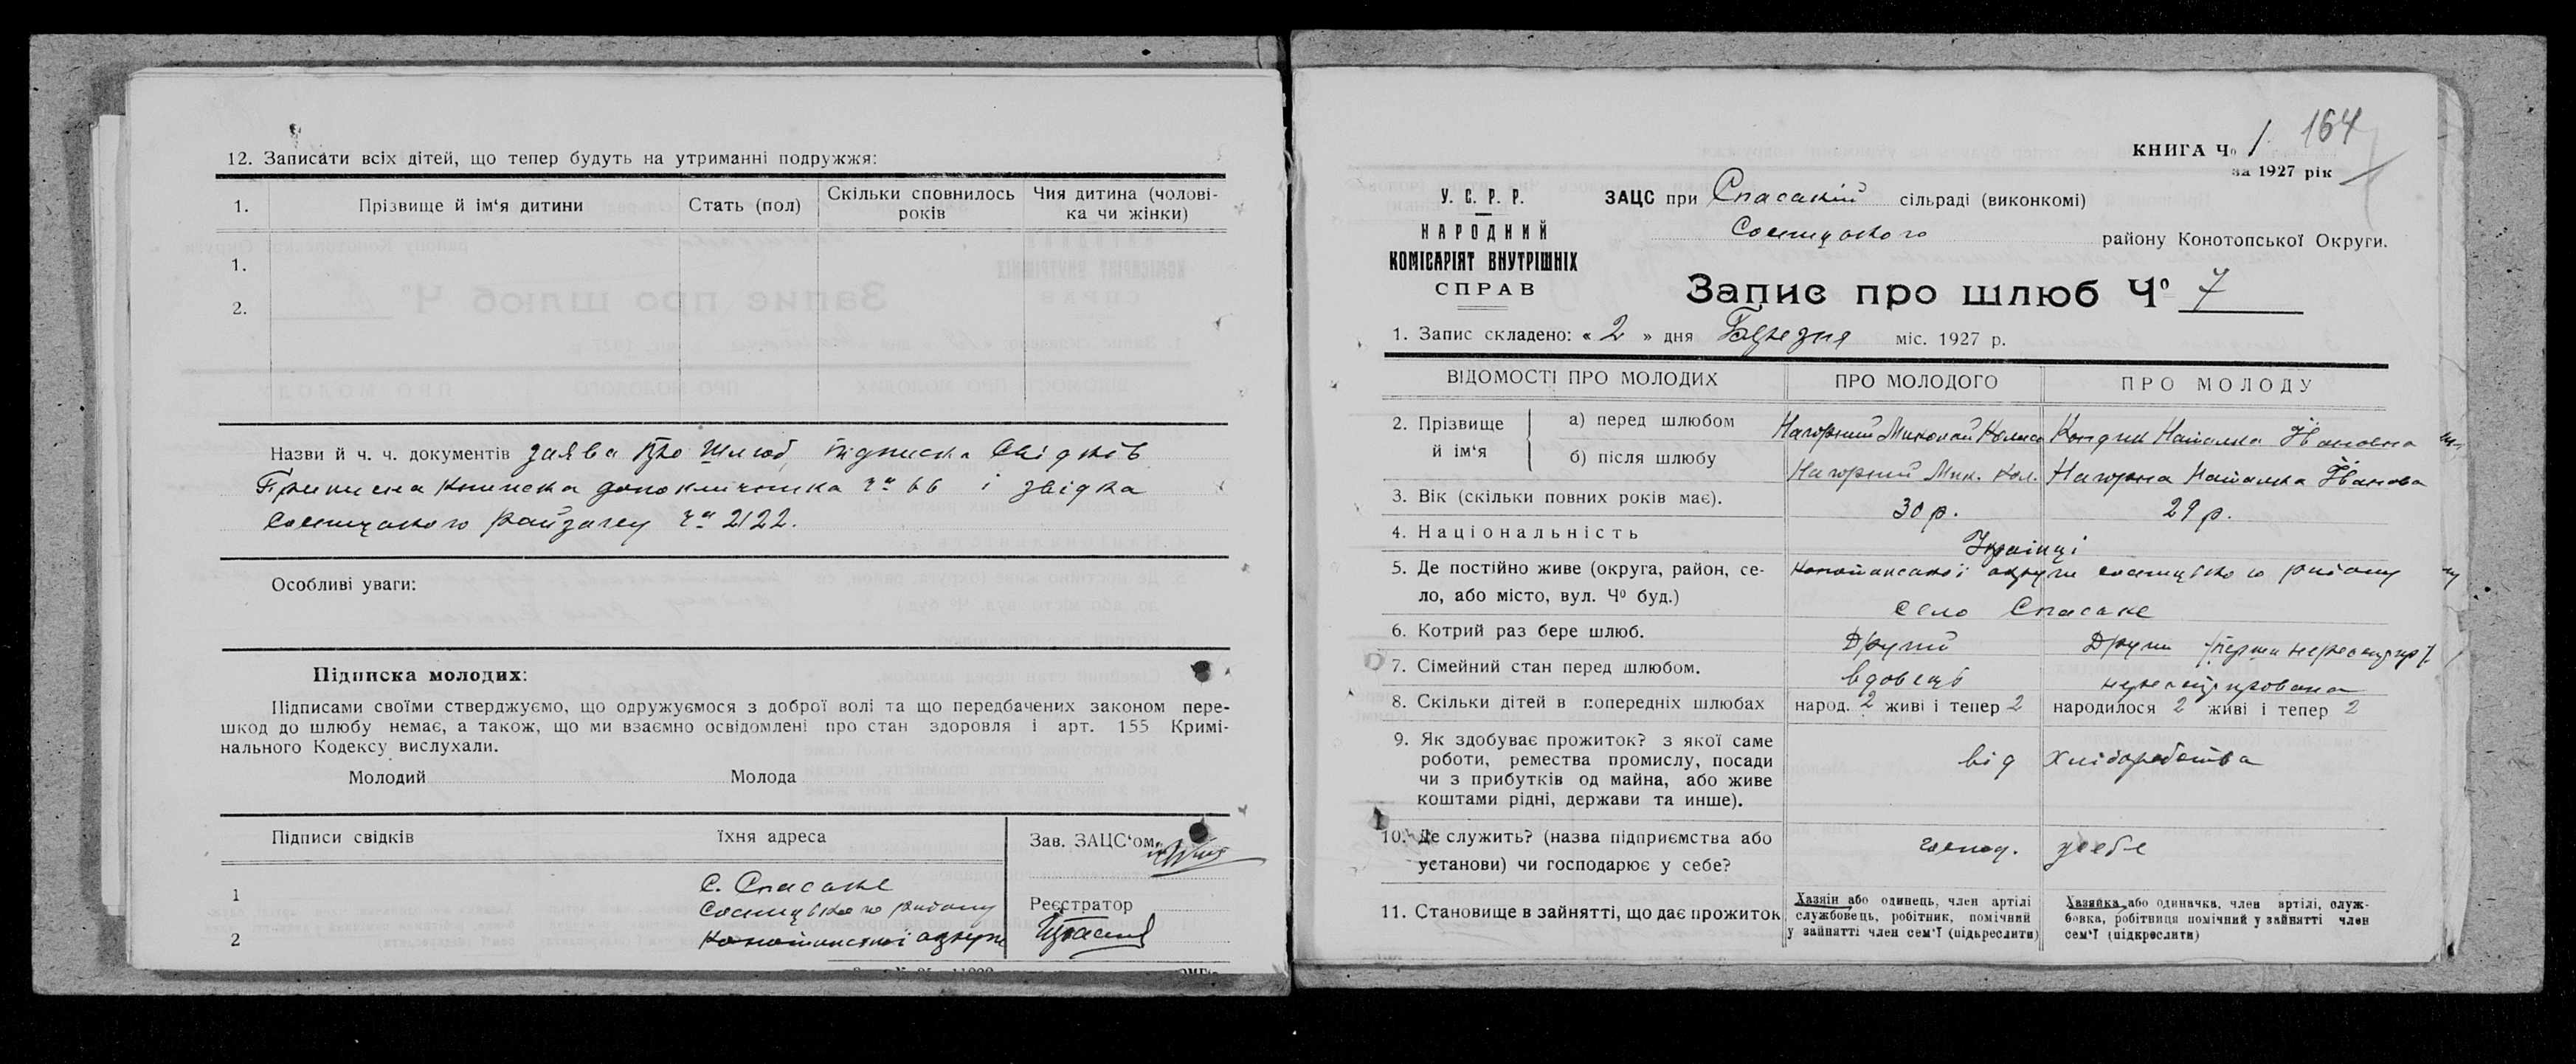 12. Записати всіх дітей, що тепер будуть на утриманні подружжя:
1. Прізвище й ім‘я дитини Стать (пол) Скільки сповнилось років Чия дитина (чоловіка чи жінки)
1.
2.
Назви й ч. ч. документів заява про шлюб, підписка свідків
Приписна книжка допокличника чо 66 і звідка
Сосницького райзагсу чо 2122.
Особливі уваги:
Підписка молодих:
Підписами своїми стверджуємо, що одружуємося з доброї волі та що передбачених законом пере-
шкод до шлюбу немає, а також, що ми взаємно освідомлені про стан здоровля і арт. 155 Кримі-
нального Кодексу вислухали.
Молодий Молода
Підписи свідків їхня адреса Зав. ЗАЦС‘ом
1 С. Спаське
Сосницького району Реєстратор
2 Конотопської округи
КНИГА Чо 1 164
за 1927 рік
У. С. Р. Р.
НАРОДНИЙ
КОМІСАРІЯТ ВНУТРІШНІХ
СПРАВ
ЗАЦС при Спаській сільраді (виконкомі)
Сосницького району Конотопської Округи.
Запис про шлюб Чо 7
1. Запис складено: « 2 » дня Березня міс. 1927 р.
ВІДОМОСТІ ПРО МОЛОДИХ ПРО МОЛОДОГО ПРО МОЛОДУ
2. Прізвище й ім‘я а) перед шлюбом Нагорний Миколай Кондик Наталка Івановна
б) після шлюбу Нагорний Мик. Нагорна Наталка Іванова
3. Вік (скільки повних років має). 30 р. 29 р.
4. Національність Українці
5. Де постійно живе (округа, район, се- Конотопської округи сосницького району
ло, або місто, вул. Чо буд.) село Спаське
6. Котрий раз бере шлюб. Другий Други
7. Сімейний стан перед шлюбом. вдовець
8. Скільки дітей в попередніх шлюбах народ. 2 живі і тепер 2 народилося 2 живі і тепер 2
9. Як здобуває прожиток? з якої саме
роботи, ремества промислу, посади від Хліборобства
чи з прибутків од майна, або живе
коштами рідні, держави та инше).
10. Де служить? (назва підприємства або
установи) чи господарює у себе? господ. усебе
11. Становище в зайнятті, що дає прожиток
Хазяін або одинець, член артілі
службовець, робітник, помічний
у зайнятті член сем‘ї (підкреслити)
Хазяйка або одиначка, член артілі, служ-
бовка, робітниця помічний у зайнятті член
сем‘ї (підкреслити)